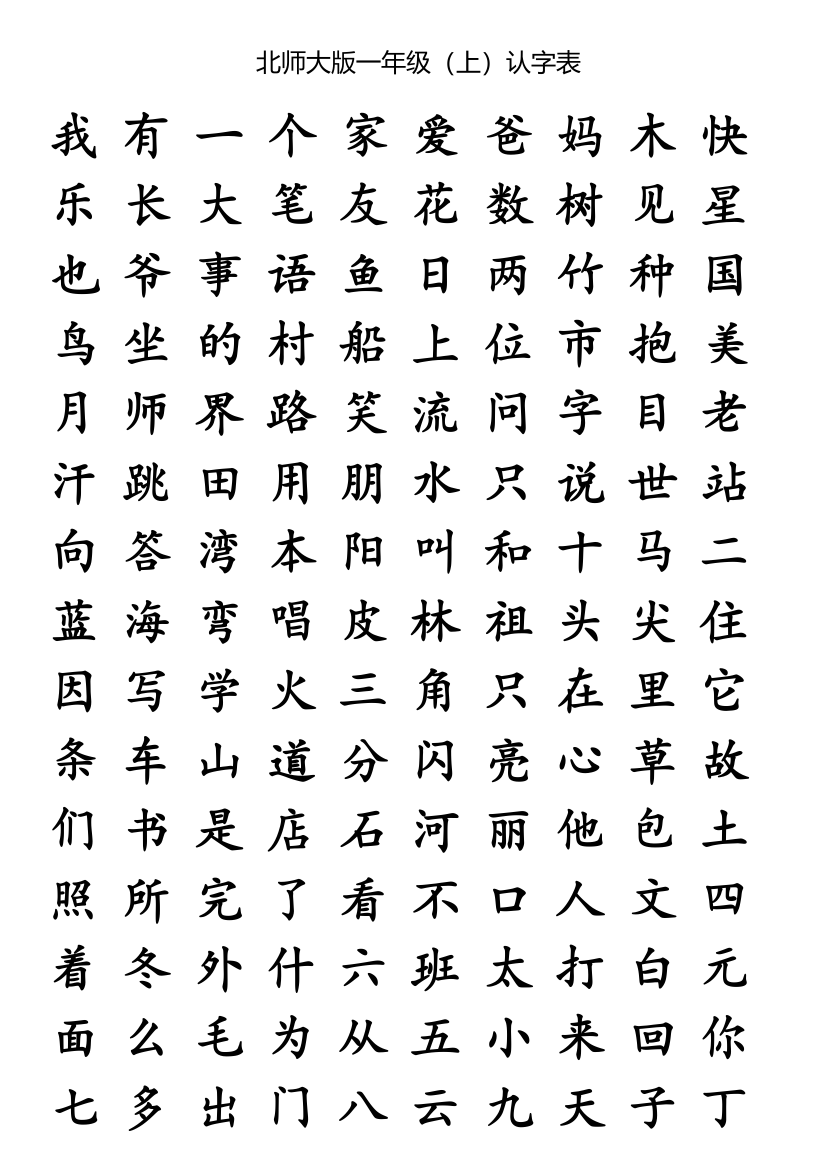 北师大版一年级（上）认字表
我 有 一 个 家 爱 爸 妈 木 快
乐 长 大 笔 友 花 数 树 见 星
也 爷 事 语 鱼 日 两 竹 种 国
鸟 坐 的 村 船 上 位 市 抱 美
月 师 界 路 笑 流 问 字 目 老
汗 跳 田 用 朋 水 只 说 世 站
向 答 湾 本 阳 叫 和 十 马 二
蓝 海 弯 唱 皮 林 祖 头 尖 住
因 写 学 火 三 角 只 在 里 它
条 车 山 道 分 闪 亮 心 草 故
们 书 是 店 石 河 丽 他 包 土
照 所 完 了 看 不 口 人 文 四
着 冬 外 什 六 班 太 打 白 元
面 么 毛 为 从 五 小 来 回 你
七 多 出 门 八 云 九 天 子 丁